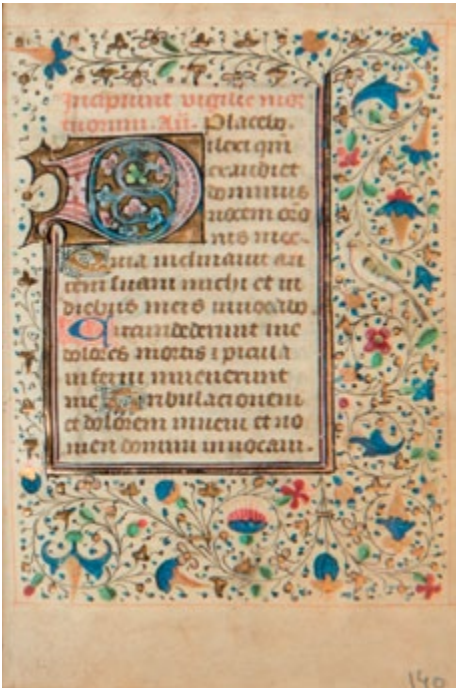 Incipiunt vigilie mor
tuorum. An̄. Placebo.
Dilexi qm̄
exaudiet
dominus
uocem oro
nis mee.
Quia inclinauit au
rem suam michi et in
diebus meis inuocabo.
Circumdederunt me
dolores mortis i picula
inferni inuenerunt
me Tribulacionem
et dolorem inueni et no
men domini inuocaui.
140